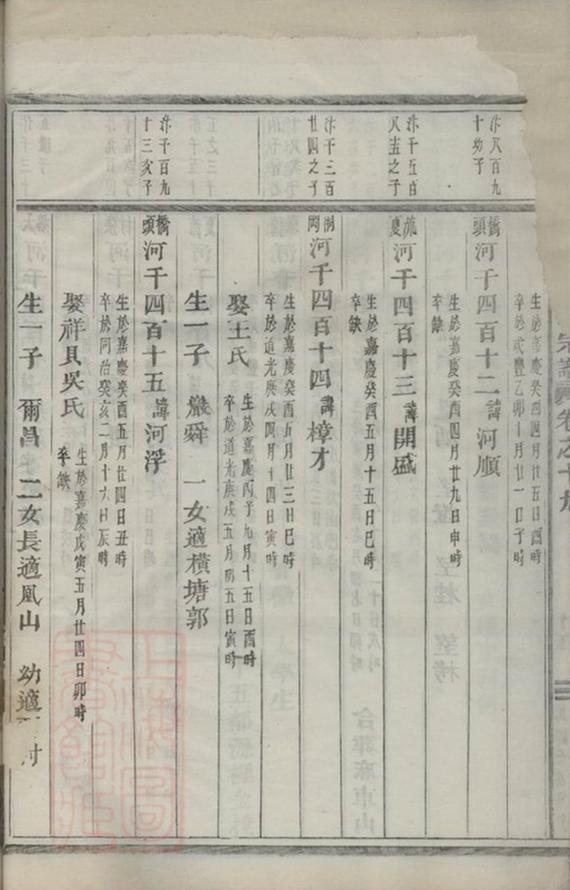 生於嘉慶癸酉四月廿五日酉時
卒於咸豐乙卯十月廿一日子時
汴八百九
十幼子
橋頭
河千四百十二 諱河順
生於嘉慶癸酉四月廿九日申時
卒缺
汴千五百
之子
夏
河千四百十三 諱開盛
生於嘉慶癸酉五月十五日巳時
卒缺
汴千三百
廿四之子
河千四百十四 諱樟才
生於嘉慶癸酉五月廿三日巳時
卒於道光庚戌四月十四日寅時
娶王氏
生於嘉慶丙子九月十五日酉時
卒於道光庚戌五月初五日寅時
生一子 嚴舜 一女適橫塘郭
汴千百九
十三亥子
橋頭
河千四百十五 諱河浮
生於嘉慶癸酉五月廿四日丑時
卒於同治癸亥二月十六日辰時
娶祥貝吳氏
生於嘉慶戊寅五月廿四日卯時
卒缺
生一子 爾昌 二女長適鳳山 幼適 村